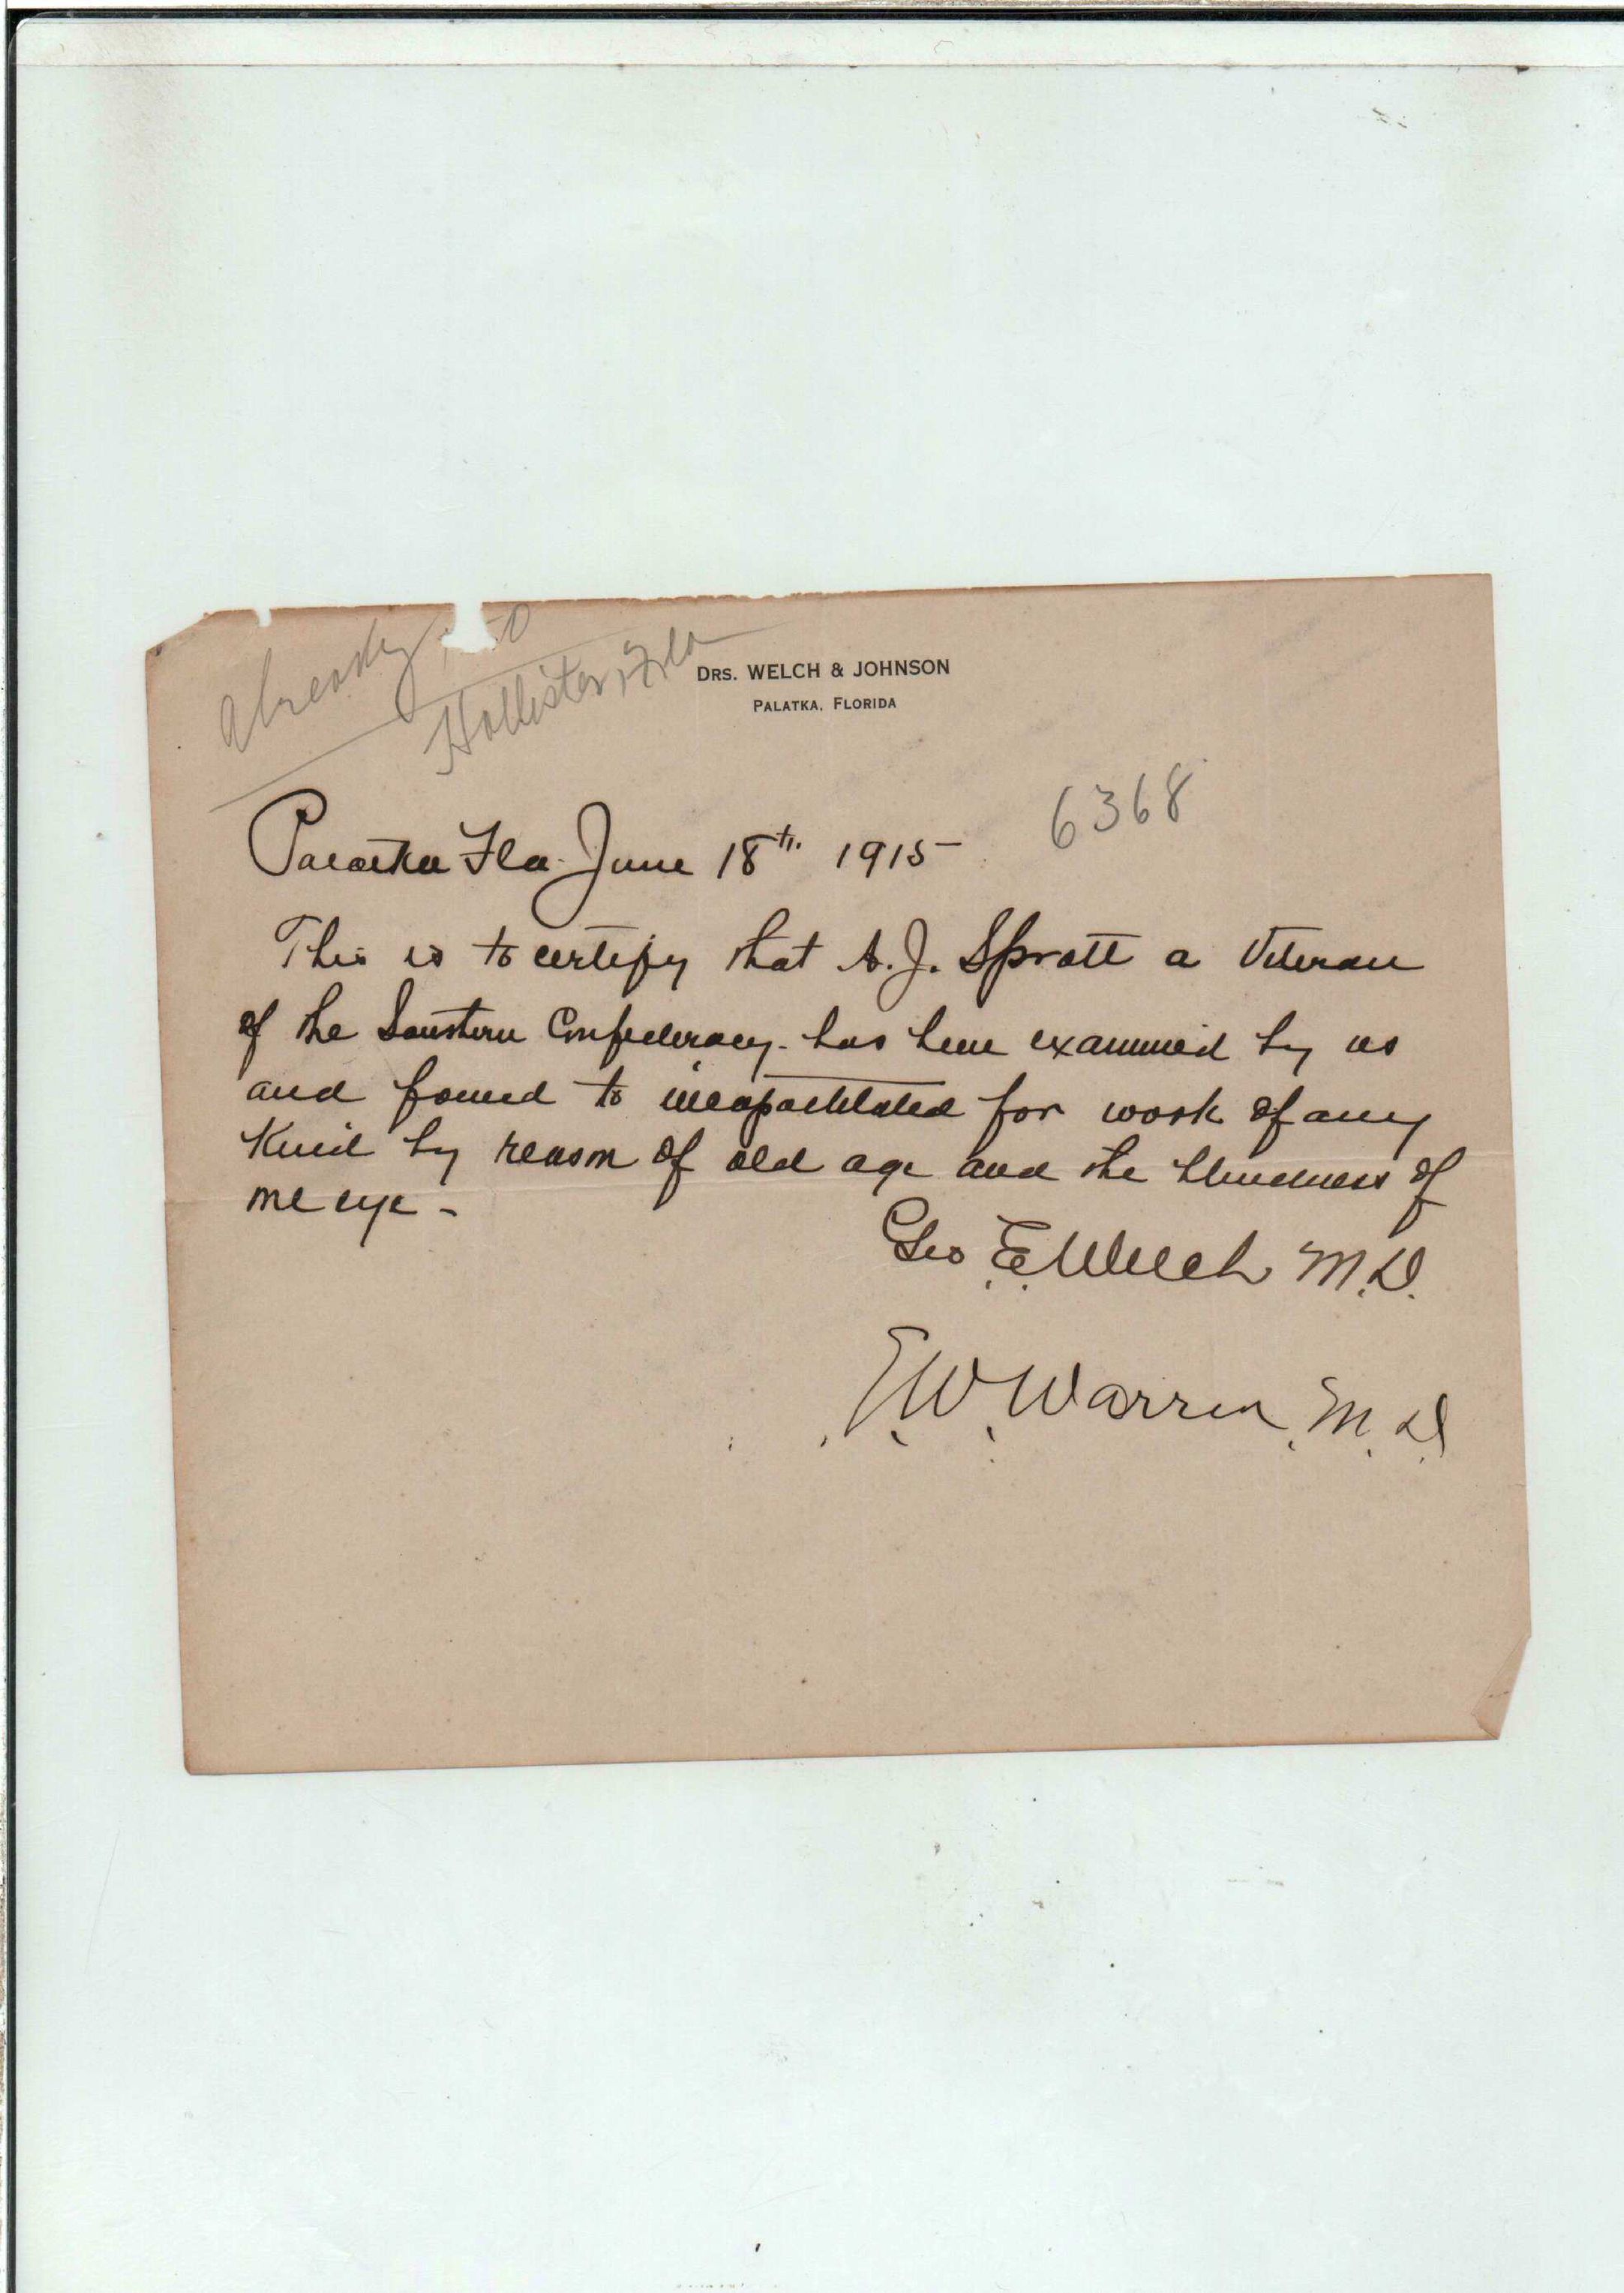 Already
Hollister, Fla
DRS. WELCH & JOHNSON
PALATKA, FLORIDA
6368
Palatka Fla. June 18th. 1915-
This is to certify that A. J. Spratt a Veteran
of the Southern Confederacy - has been examined by us
and found to incapacitated for work of any
Kind by reason of old age and the blindness of
one eye -
Geo. E. Welch M.D.
E. W. Warren, M.D.